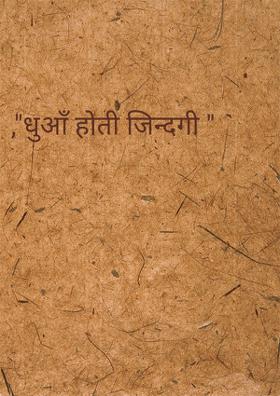 ,"धुआँ होती जिन्दगी "